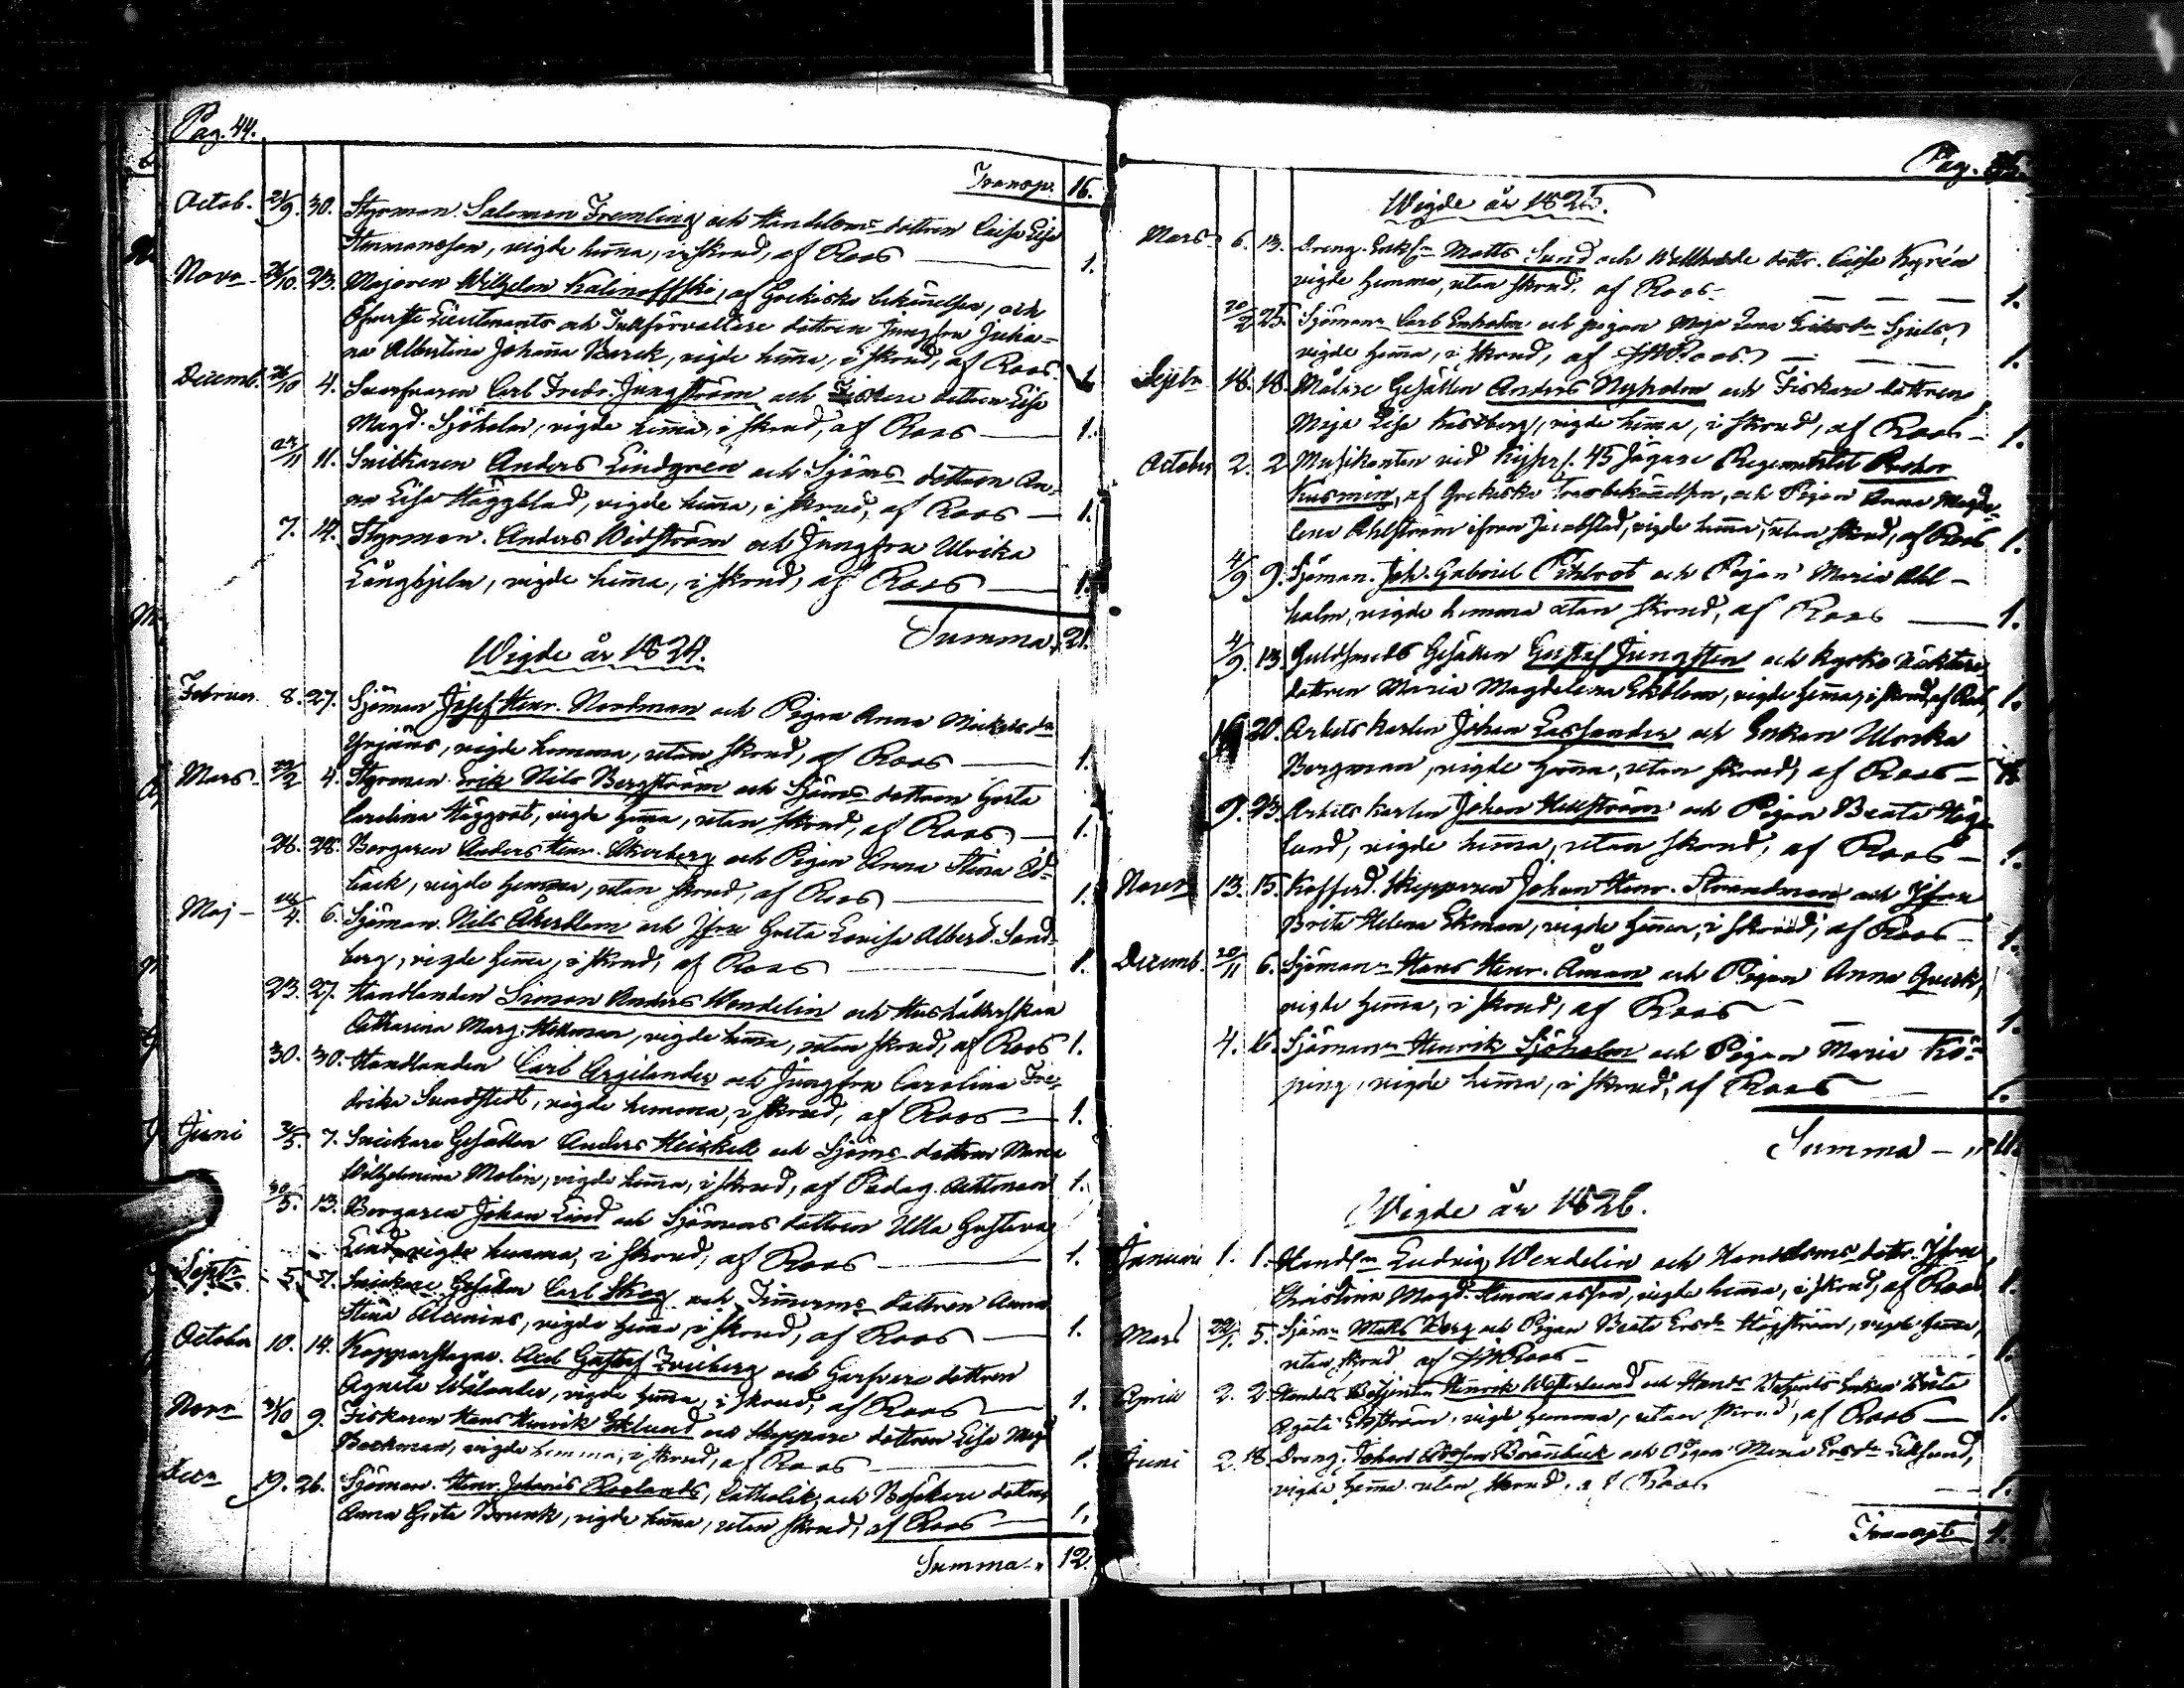 Pag. 44.
Transp. 16.
Octob. 21/9. 30. Styrman. Salomon Fremling och Handelsms dottren Caisa Lisa
Hermansson, vigde hem̄a, i skrud, af Roos — 1.
Novr 26/10. 23. Majoren Wilhelm Kalinoffski, af Grekiska bekän̄elsen, och
Öfverste Lieutenants och Tullförvaltare dottren Jungfru Julia-
na Albertina Johan̄a Barck, vigde hem̄a, i skrud, af Roos. 1.
Decemb. 26/10 4. Svarfvaren Carl Fredr. Jungström och Fiskare dottren Lisa
Magd. Sjöholm, vigde hem̄a, i skrud, af Roos — 1.
11. Snickaren Anders Lindgrén och Sjöms dottren An-
na Lisa Häggblad, vigde hem̄a, i skrud, af Roos — 1.
7. 14. Styrman. Anders Widström och Jungfru Ulrika
Långhjelm, vigde hem̄a, i skrud, af Roos — 1.
Summa 21.
Wigde år 1824.
Februar. 8. 27. Sjöman Josef Henr. Nordman och Pigan Anna Mickelsdr
Yrjäns, vigde hemma, utan skrud, af Roos — 1.
Mars 29/2 4. Styrman Erik Nils Bergström och Sjöms dottren Greta
Carolina Häggqvst, vigde hem̄a, utan skrud, af Roos — 1.
26. 28. Borgaren Anders Henr. Åkerberg och Pigan Anna Stina Ed-
bäck, vigde hemma, utan skrud, af Roos — 1.
Maj 18/4. 6. Sjöman. Nils Åkerblom och Jfru Greta Lovisa Albert. Sand-
berg, vigde hem̄a, i skrud, af Roos — 1.
23. 27. Handlanden Simon Anders Wendelin och Hushållerskan
Catharina Marg. Hellman, vigde hem̄a, utan skrud, af Roos 1.
30. 30. Handlanden Carl Argilander och Jungfru Carolina Fre-
drika Sundstedt, vigde hemma, i skrud, af Roos — 1.
Juni 2/5. 7. Snickare Gesällen Anders Heickell och Sjöms dottren Maria
Wilhelmina Molin, vigde hem̄a, i skrud, af Pædag. Aichtman 1.
30/5. 13. Borgaren Johan Lind och Sjömans dottren Ulla Gustava
Lind, vigde hemma, i skrud, af Roos — 1.
Septr 5. 7. Snickare Gesällen Carl Skog och Tim̄erms dottren Anna
Stina Alcenius, vigde hem̄a, i skrud, af Roos — 1.
October 10. 14. Kopparslagar. Axel Gustaf Zwieberg och Garfvare dottren
Agneta Wålander, vigde hem̄a, i skrud, af Roos — 1.
Novr 31/10 9. Fiskaren Hans Henrik Eklund och Skeppare dottren Lisa Magd
Backman, vigde hemma, i skrud, af Roos — 1.
Decr 19. 26. Sjöman. Henr. Johanis Roelands, Catholik, och Besökare dottren
Anna Greta Brunk, vigde hem̄a, utan skrud, af Roos — 1.
Summa 12.
Pag.
Wigde år 1825.
Mars 6. 13. Dreng. Enkln Matts Sund och Wallherde dottr. Caisa Kyrén
vigde hemma, utan skrud, af Roos — 1.
20/2 25. Sjömann Carl Enholm och pigan Maja Lena Eriksdr
vigde hem̄a, i skrud, af JMRoos — 1.
Septbr 18. 18. Målare Gesällen Anders Nyholm och Fiskare dottren
Maja Lisa Kastberg, vigde hem̄a, i skrud, af Roos — 1.
October 2. 2 Musikanten vid Kejserl. 45 Jägare Regementet Prohor
Kusmin, af Grekiska Trosbekän̄elsen, och Pigan Anna Magda-
lena Ahlström ifrån Jacobstad, vigde hem̄a, utan skrud, af Roos 1.
4/9 9. Sjöman. Joh. Gabriel Pihlrot och Pigan Maria Ahl-
holm, vigde hemma utan skrud, af Roos — 1.
4/9. 13 Guldsmeds Gesällen Gustaf Jungsten och Kyrko väktare
dottren Maria Magdalena Ekblom, vigde hem̄a, i skrud, af Roos, 1.
20. Arbetskarlen Johan Cassander och Enkan Ulrika
Bergman, vigde hem̄a, utan skrud, af Roos — 1.
9. 23. Arbets karlen Johan Hellström och Pigan Beata Häg-
lund, vigde hem̄a, utan skrud, af Roos — 1.
Novembr 13. 15. Koffard. Skepparen Johan Henr. Strandman och Jfru
Brita Helena Ekman, vigde hem̄a, i skrud, af Roos — 1.
Decemb. 20/11 6. Sjömann Hans Henr. Åman och Pigan Anna Qvick,
vigde hem̄a, i skrud, af Roos — 1.
4. 16. Sjömann Henrik Sjöholm och Pigan Maria Kö-
ping, vigde hem̄a, i skrud, af Roos — 1.
Summa — 11.
Wigde år 1826.
Januari 1. 1. Handln Ludvig Wendelin och Handelsms dottr. Jfru
Christina Magd. Hermansson, vigde hem̄a, i skrud, af Roos 1.
Mars 5. Sjömn Matts Berg och Pigan Beata Ersdr Högström, vigde hem̄a,
utan skrud af JMRoos — 1.
April 2. 2. Handels Betjenten Henrik Westerlund och Hands Betjents Enkan Brita
Agata Ekström, vigde hemma, utan skrud, af Roos — 1.
Juni 2. 18. Dreng. Johan Brännback och Pigan Maria Ersdr Eklund,
vigde hem̄a utan skrud, af Roos — 1.
Transpt